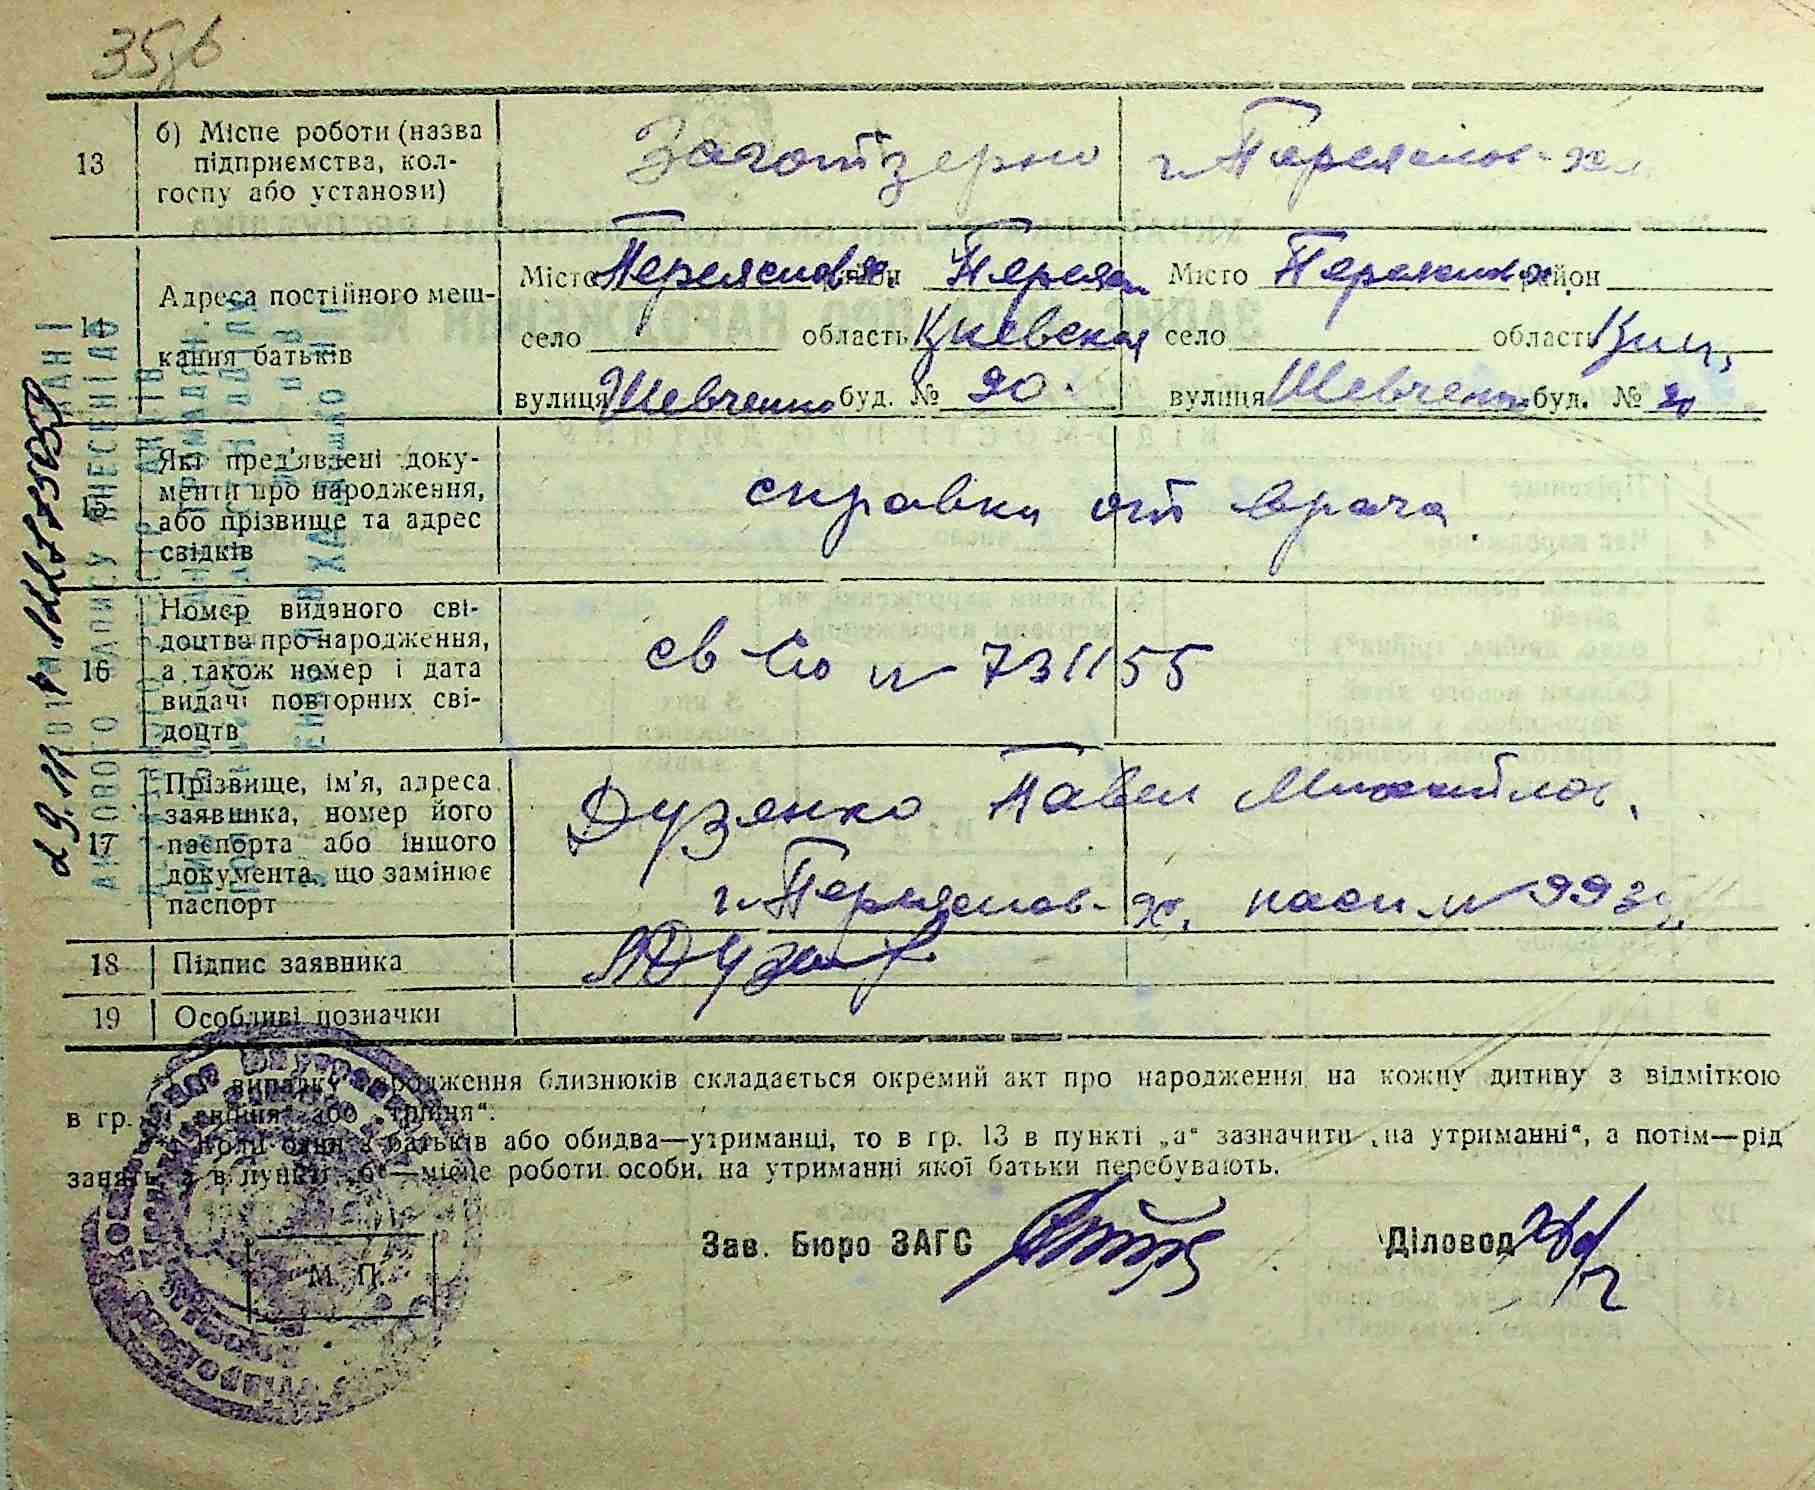 13
б) Місце роботи (назва
підприємства, кол-
госпу або установи)
Заготзерно г. Переяслов-Хм.
14
Адреса постійного меш-
кання батьків
Місто Переяслов Х. район Переясл Місто Переяслов Х. район
село область Киевская село область Киев
вулиця Шевченко буд. № 20 вулиця Шевченко буд. № 20
15
Які пред'явлені доку-
менти про народження,
або прізвище та адрес
свідків
справки от врача
16
Номер виданого сві-
доцтва про народження,
а також номер і дата
видачі повторних сві-
доцтв
№ 731155
17
Прізвище, ім'я, адреса
заявника, номер його
паспорта або іншого
документа, що замінює
паспорт
Дузенко Павел Михайлов.
г. Переяслов-Х.
18 Підпис заявника
19 Особливі позначки
випадку народження близнюків складається окремий акт про народження на кожну дитину з відміткою
в гр. або „трійня“.
Коли один з батьків або обидва—утриманці, то в гр. 13 в пункті „а“ зазначити „на утриманні“, а потім—рід
занять, а в пункті „б“—місце роботи особи, на утриманні якої батьки перебувають.
Зав. Бюро ЗАГС Діловод
М. П.